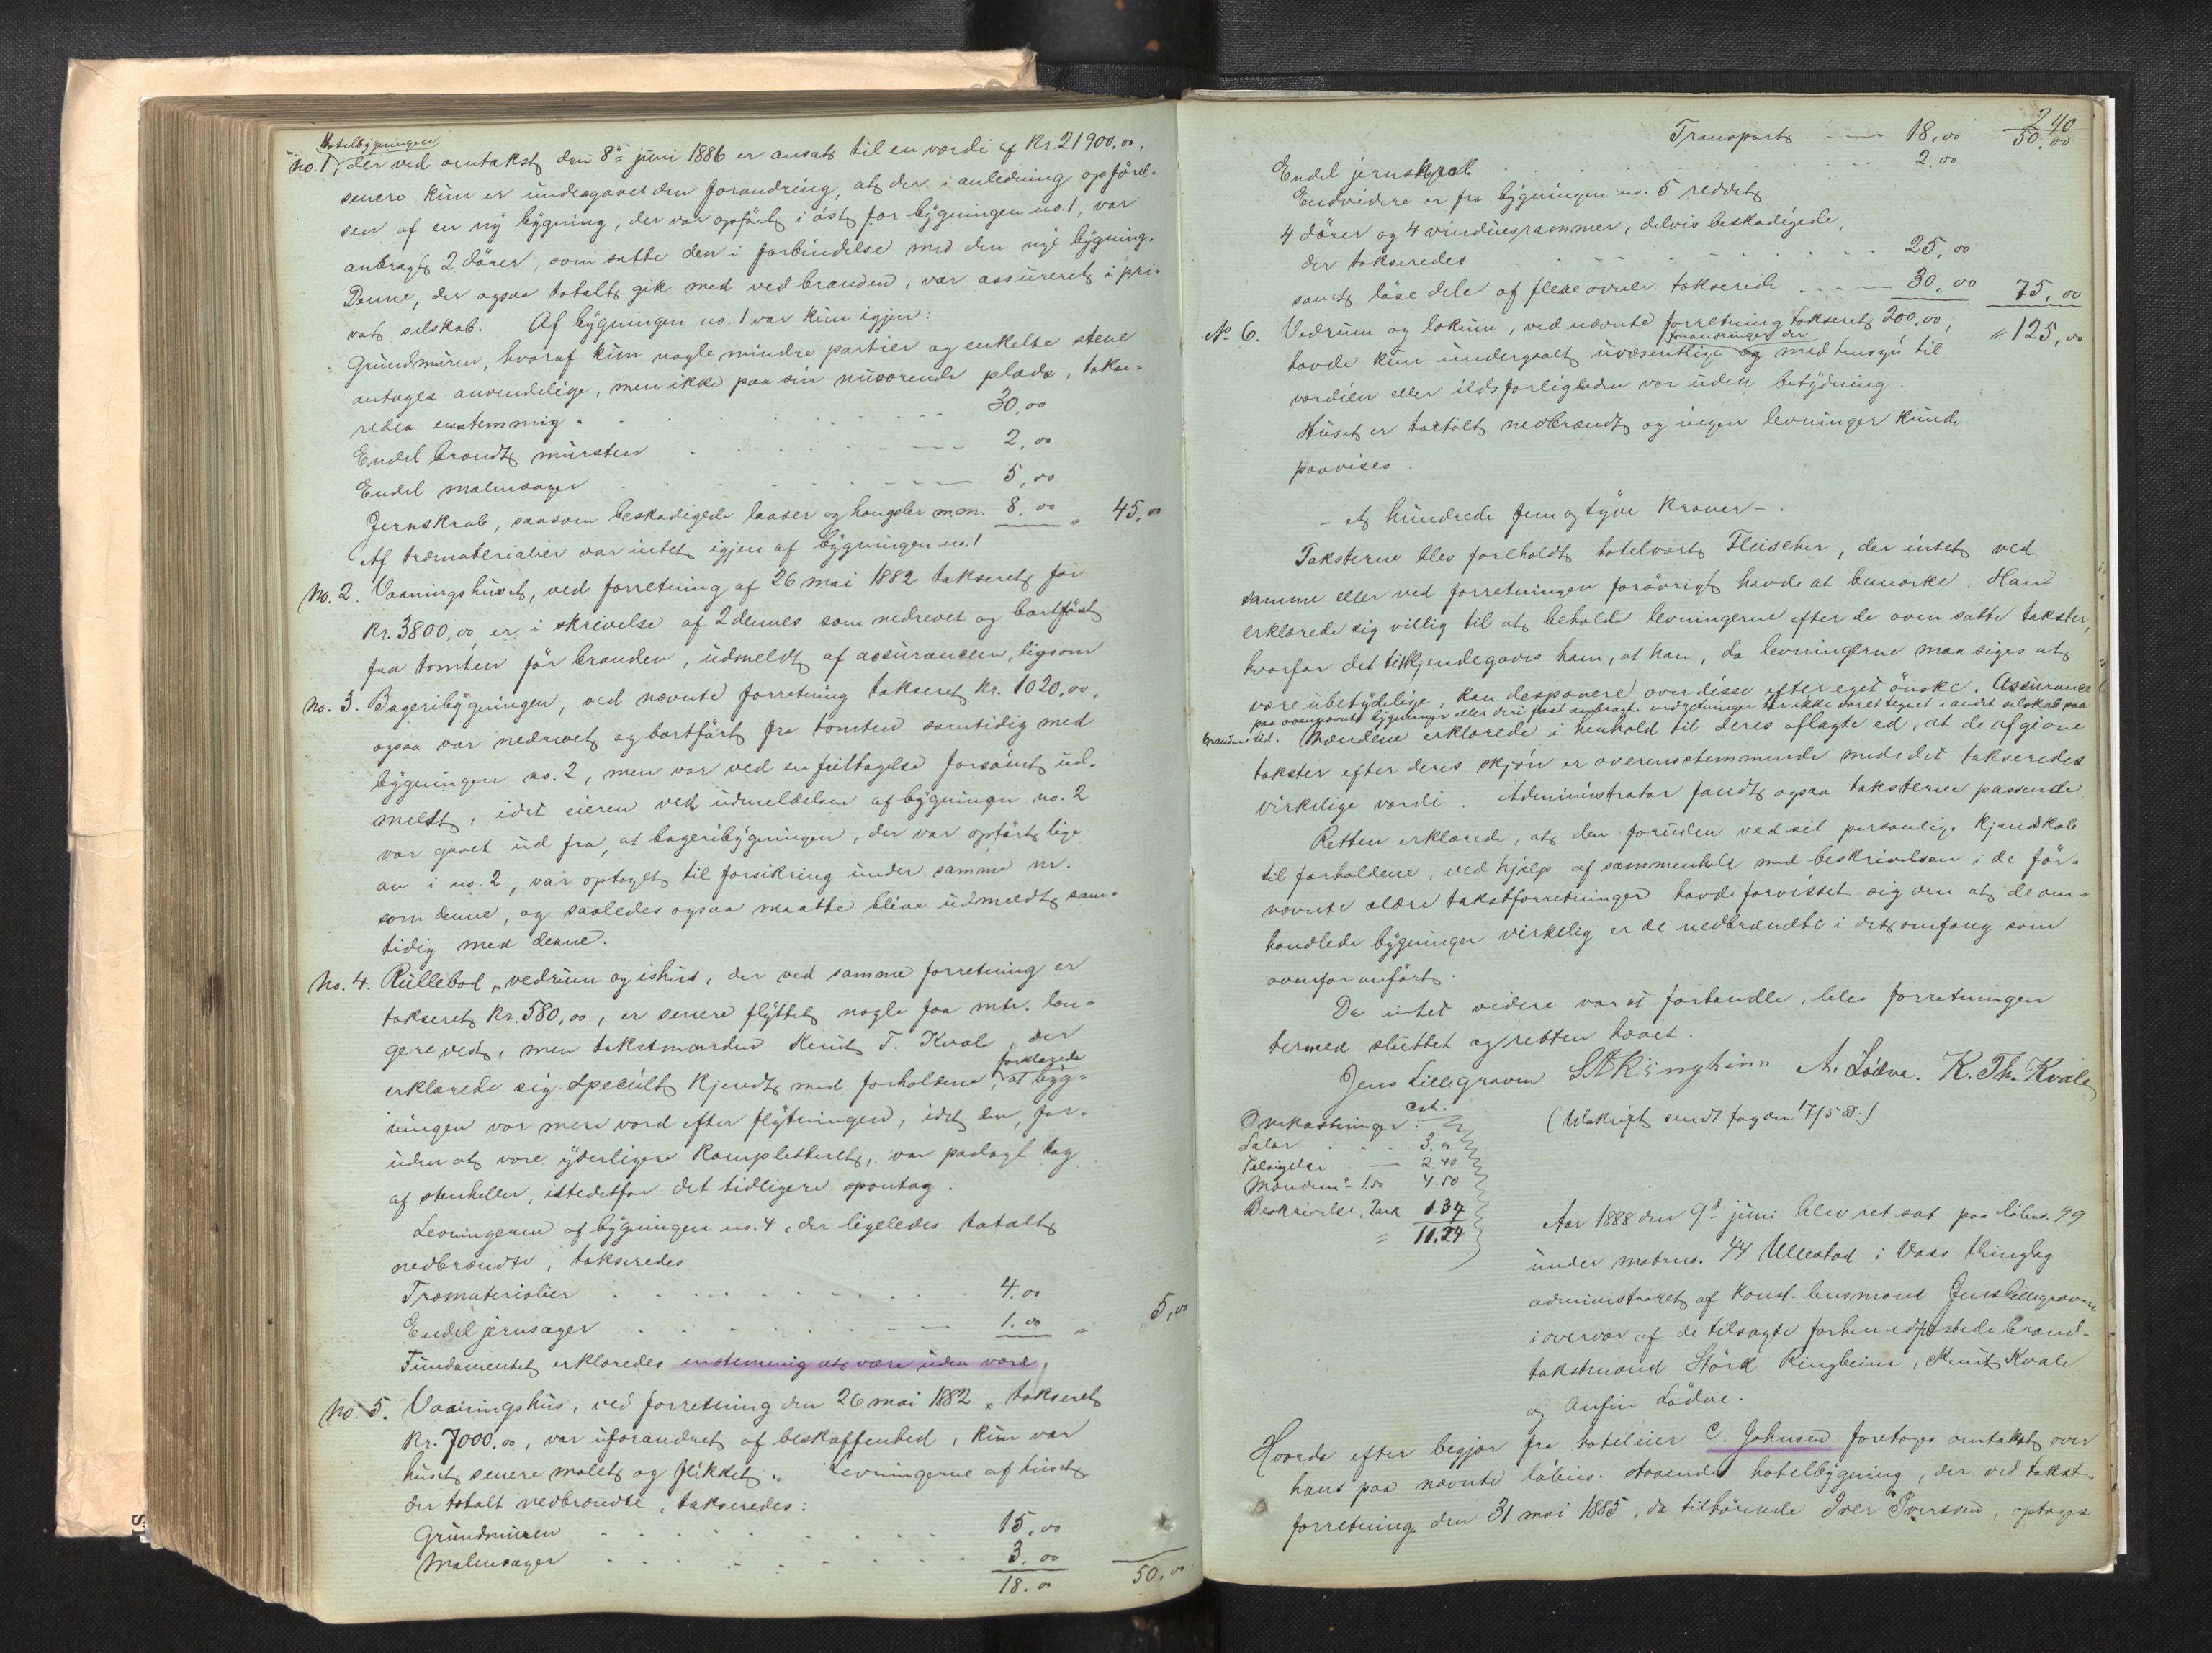 Hotelbygningen
No. 1, der ved omtakst den 8de juni 1886 er ansat til en værdi af Kr. 21900,00,
senere kun er undergaaet den forandring, at der i anledning opførel-
sen af en ny bygning, der var opført i øst for bygningen no. 1, var
anbragt 2 dører, som satte den i forbindelse med den nye bygning.
Denne, der ogsaa totalt gik med ved branden, var assureret i pri-
vat selskab. Af bygningen no. 1 var kun igjen:
Grundmuren, hvoraf kun nogle mindre partier og enkelte stene
antages anvendelige, men ikke paa sin nuværende plads, takse-
redes enstemmig. 30,00
Endel brændt mursten 2,00
Endel malmsager 5,00
Jernskrab, saasom beskadigede laaser og hængsler m.m. 8.00 " 45,00
Af træmaterialier var intet igjen af bygningen no. 1
No. 2. Vaaningshuset, ved forretning af 26 mai 1882 takseret for
Kr. 3800,00, er i skrivelse af 2 dennes som nedrevet og bortført
fra tomten før branden, udmeldt af assurancen, ligsom
No. 3. Bageribygningen, ved nævnte forretning takseret Kr. 1020,00,
ogsaa var nedrevet og bortført fra tomten samtidig med
bygningen no. 2, men var ved en feiltagelse forsømt ud-
meldt, idet eieren ved udmeldelsen af bygningen no. 2
var gaaet ud fra, at bageribygningen, der var opført lige
an i no. 2, var optaget til forsikring under samme nr.
som denne, og saaledes ogsaa maatte blive udmeldt sam-
tidig med denne.
No. 4. Rullebod, vedrum og ishus, der ved samme forretning er
takseret Kr. 580,00, er senere flyttet nogle faa mtr. læn-
gere vest, men takstmanden Knut T. Kvale, der
erklærede sig specielt kjendt med forholdene, forklarede at byg-
ningen var mere værd efter flytningen, idet den, for-
uden at være yderligere kompletteret, var paalagt tag
af stenheller, istedetfor det tidligere spontag.
Levningerne af bygningen no. 4, der ligeledes totalt
nedbrændte, takseredes
Træmaterialier 4.00
Endel jernsager 1.00 " 5,00
Fundamentet erklæredes enstemmig at være uden værd.
No. 5. Vaaningshus, ved forretning den 26 mai 1882, takseret
Kr. 7000.00, var uforandret af beskaffenhed, kun var
huset senere malet og flikket. Levningerne af huset,
der totalt nedbrændte, takseredes:
Grundmuren 15,00
Malmsager 3.00
18.00 50.00
240
Transport 18,00 50.00
Endel jernskrab 2.00
Endvidere er fra bygningen no. 5 reddet
4 dører og 4 vinduesrammer, delvis beskadigede,
der takseredes 25,00
samt løse dele af flere ovner takserede 30,00 75,00
No. 6. Vedrum og lokum, ved nævnte forretning takseret 200,00, " 125,00
havde kun undergaaet uvæsentlige forandringer der med hensyn til
værdien eller ildsfarligheden var uden betydning.
Huset er totalt nedbrændt og ingen levninger kunde
paavises.
– et hundrede fem og tyve kroner – .
Taksterne blev foreholdt hotelvært Fleischer, der intet ved
samme eller ved forretningen forøvrigt havde at bemærke. Han
erklærede sig villig til at beholde levningerne efter de oven satte takster,
hvorfor det tilkjendegaves ham, at han, da levningerne maa siges at
være ubetydelige, kan desponere over disse efter eget ønske. Assurance
paa ovennævnte bygninger eller deri fast anbragte indretninger har ikke været tegnet i andet selskab paa
brandens tid. Mændene erklærede i henhold til deres aflagte ed, at de afgivne
takster efter deres skjøn er overensstemmende med det takseredes
virkelige værdi. Administrator fandt ogsaa taksterne passende
Retten erklærede, at den foruden ved sit personlige kjendskab
til forholdene, ved hjælp af sammenhold med beskrivelsen i de før-
nævnte ældre takstforretninger havde forvisset sig om at de om-
handlede bygninger virkelig er de nedbrændte i det omfang som
ovenfor anført.
Da intet videre var at forhandle, blev forretningen
hermed sluttet og retten hævet.
Jens Lillegraven S A Ringheim A. Lødve. K. Th. Kvale
(Udskrift sendt fogden 17/5 88.)
Omkostninger:
Salær 3.00
Tilsigelse 2.40
Mændene 1.50 4.50
Beskrivelse, Tark 1.34
" 11.24
Aar 1888 den 9de juni blev ret sat paa løbno. 99
under matrno. 44 Ullestad i Voss thinglag
administreret af konst. lensmand Jens Lillegraven
i overvær af de tilsagte forhen edfæstede brand-
takstmænd Størk Ringheim, Knut Kvale
og Anfin Lødve.
Hvorda efter begjær fra hoteleier C. Johnsen foretages omtakst over
hans paa nævnte løbno. staaende hotelbygning, der ved takst-
forretning den 31 mai 1885, da tilhørende Iver Iversen, optages